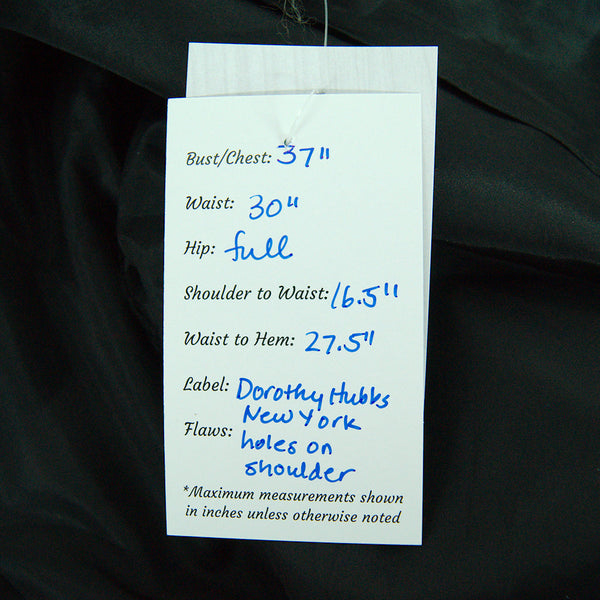 Bust/Chest: 37"
Waist: 30"
Hip: full
Shoulder to Waist: 16.5"
Waist to Hem: 27.5"
Label: Dorothy Hubbs
New York
Flaws: holes on
shoulder
*Maximum measurements shown
in inches unless otherwise noted